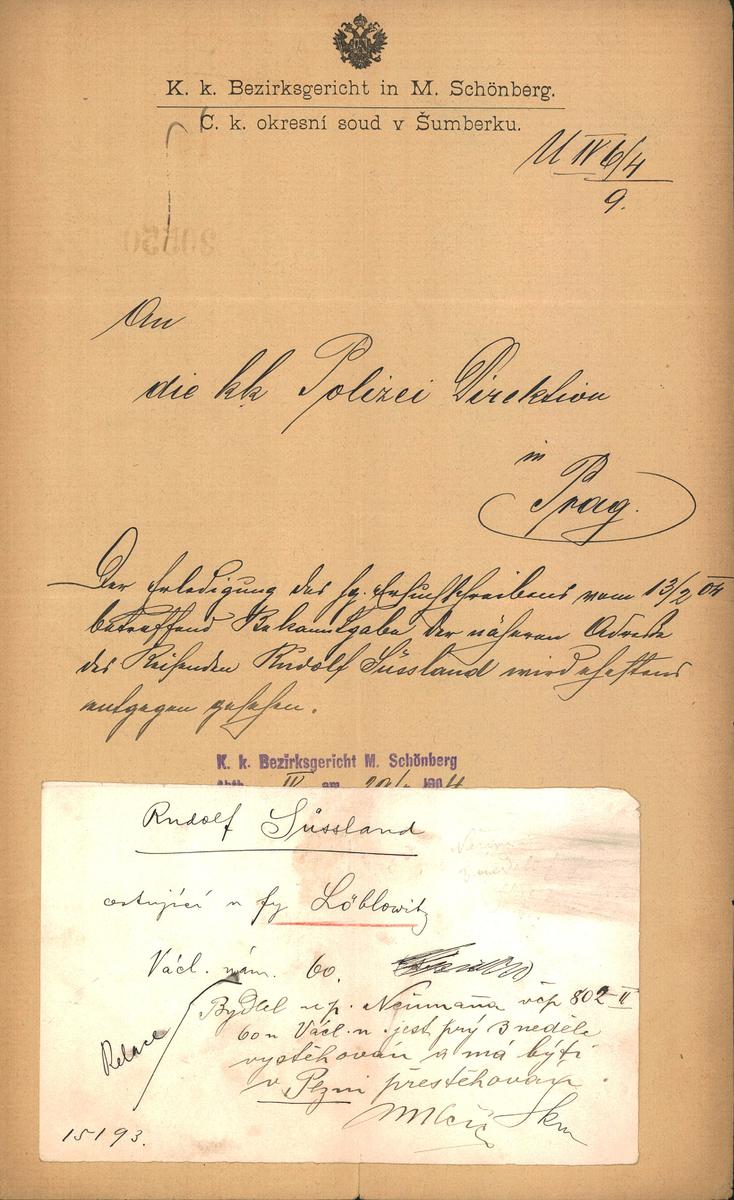 K. k. Bezirksgericht in M. Schönberg.
C. k. okresní soud v Šumberku.
U IV 6/4
9.
An
die kk Polizei Direktion
in
Prag.
Der Erledigung des hg. Ersuchschreibens vom 13/2 04
betreffend Bekanntgabe der näheren Adresse
des Reisenden Rudolf Süssland wird ehestens
entgegen gesehen.
K. k. Bezirksgericht M. Schönberg
Abth. IV am 1904
Rudolf Süssland
cestující u fy Löblowitz
Václ. nám. 60.
Bydlel u p. Neumanna včp 802-II
60 n Václ. n. jest prý 3 neděle
vystěhován a má býti
v Plzni přestěhován.
Relace
15193.